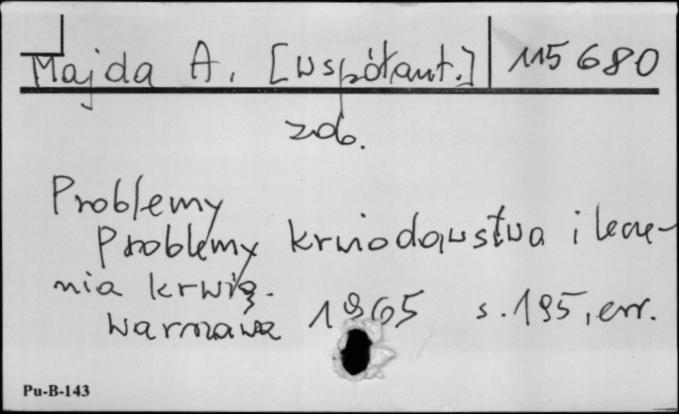 Majda A. [współaut.] 115680
zob.
Problemy
Problemy krwiodawstwa i lecze-
nia krwią.
Warszawa 1965 s. 195, err.
Pu-B-143